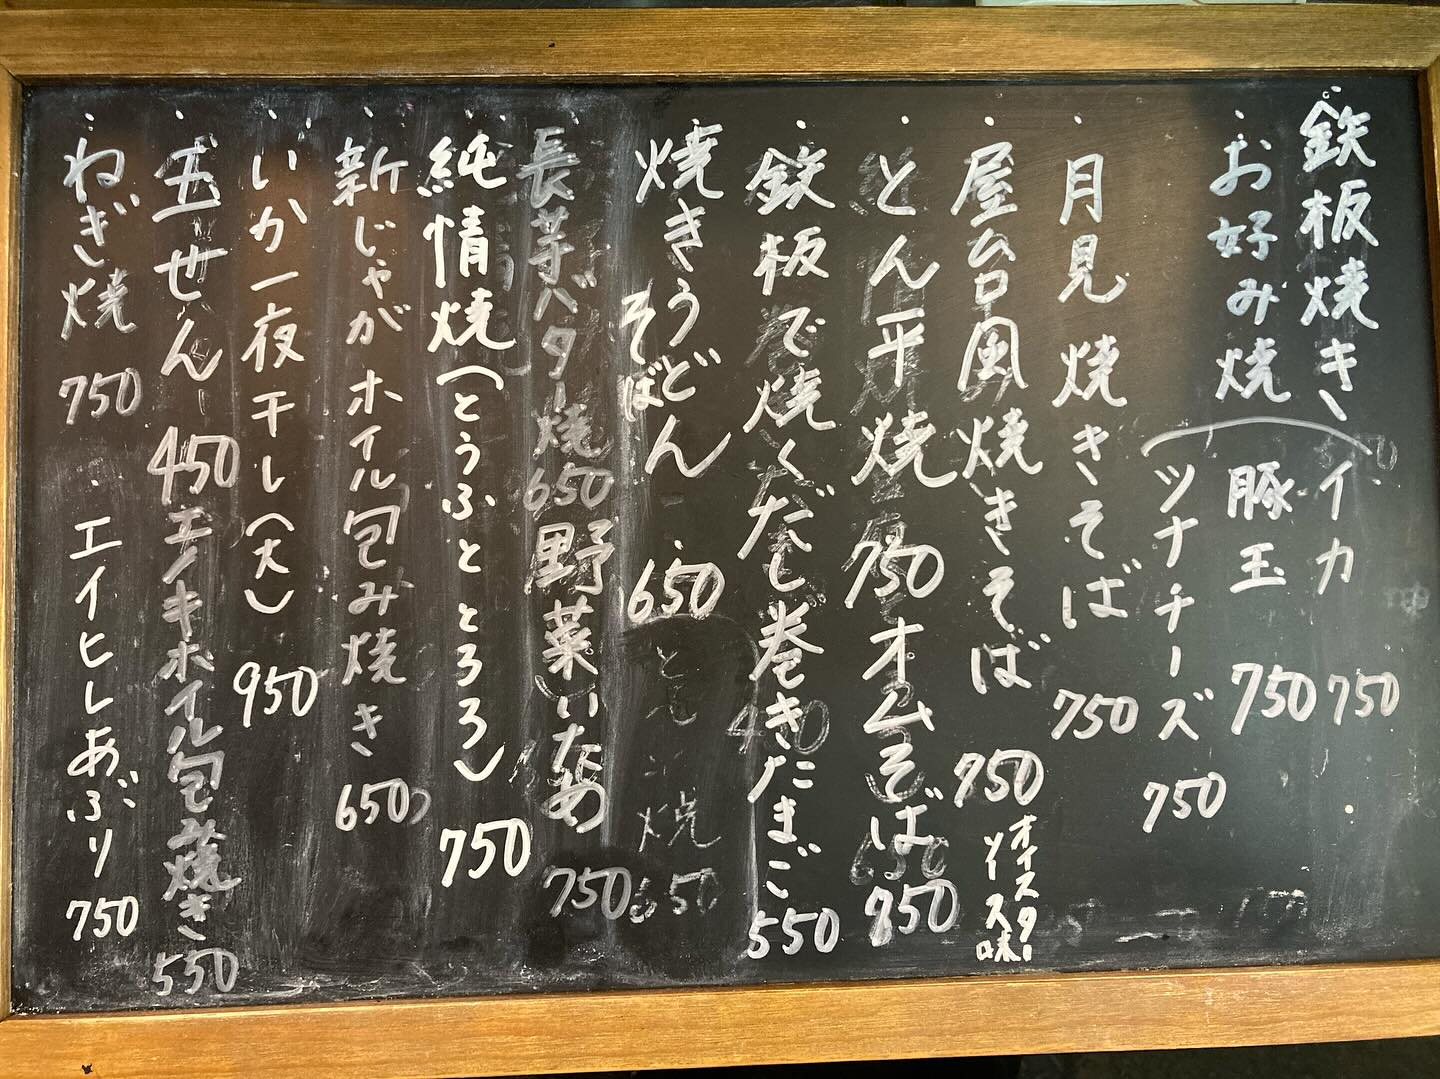 鉄板焼き
・お好み焼
イカ 750
豚玉 750
ツナチーズ 750
・月見焼きそば 750
・屋台風焼きそば 950
オイスターソース味
・とん平焼 750
オムそば 950
・鉄板で焼くだし巻きたまご 550
・焼きうどん
そば
650
・長芋バター焼 650
野菜いため 750
・純情焼(とうふととろろ) 750
・新じゃがホイル包み焼き 650
・いか一夜干し(大) 950
・五せん 450
エノキホイル包み焼き 550
・ねぎ焼 750
・エイヒレあぶり 750